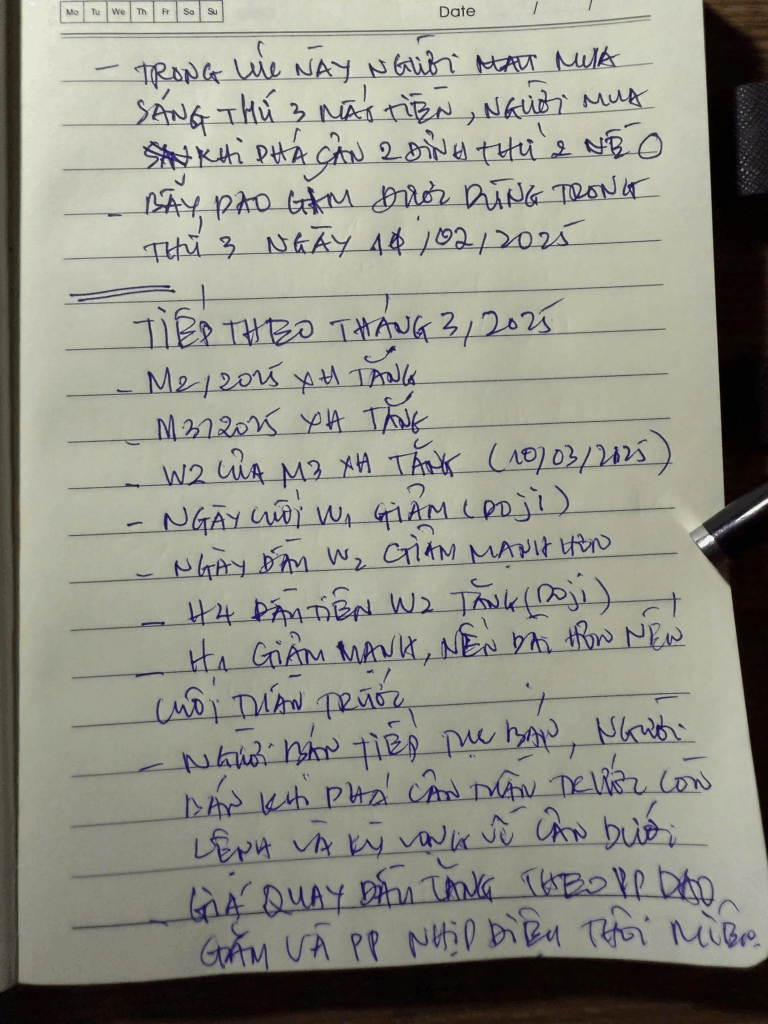 Mo Tu We Th Fr Sa Su
Date / /
- TRONG LÚC NÀY NGƯỜI MUA
SÁNG THỨ 3 MẤT TIỀN, NGƯỜI MUA
KHI PHÁ CẢN 2 ĐỈNH THỨ 2 VỀ O
- BẪY DAO GĂM ĐƯỢC DÙNG TRONG
THỨ 3 NGÀY 11/02/2025
TIẾP THEO THÁNG 3/2025
- M2/2025 XH TĂNG
M3/2025 XH TĂNG
- W2 CỦA M3 XH TĂNG (10/03/2025)
- NGÀY CUỐI W1 GIẢM (DOJI)
- NGÀY ĐẦU W2 GIẢM MẠNH HƠN
- H4 ĐẦU TIÊN W2 TĂNG (DOJI)
- H1 GIẢM MẠNH, NẾN DÀI HƠN NẾN
CUỐI TUẦN TRƯỚC
- NGƯỜI BÁN TIẾP TỤC BÁN, NGƯỜI
BÁN KHI PHÁ CẢN TUẦN TRƯỚC CÒN
LỆNH VÀ KỲ VỌNG VỀ CẢN DƯỚI
- GIÁ QUAY ĐẦU TĂNG THEO PP DAO
GĂM VÀ PP NHỊP ĐIỆU THÔI MIÊN